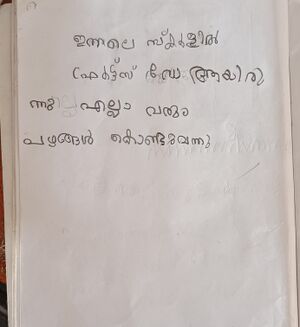 ഇന്നലെ സ്കൂളിൽ
ഫ്രൂട്ട്സ് ഡേ ആയിരു
ന്നു എല്ലാ വരും
പഴങ്ങൾ കൊണ്ടുവന്നു